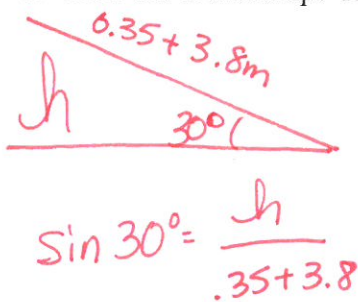 0.35 + 3.8m
h
30°
sin 30° = h
.35 + 3.8